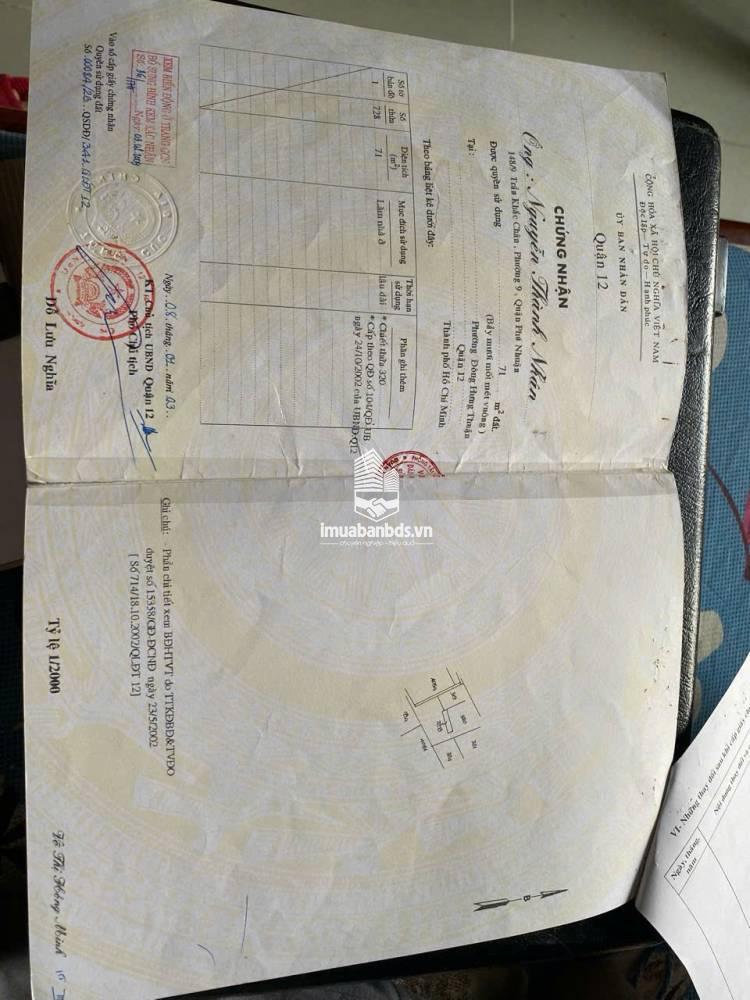 CỘNG HÒA XÃ HỘI CHỦ NGHĨA VIỆT NAM
Độc lập - Tự do - Hạnh phúc
ỦY BAN NHÂN DÂN
Quận 12
CHỨNG NHẬN
Ông : Nguyễn Thành Nhân
148/9 Trần Khắc Chân , Phường 9 , Quận Phú Nhuận
Được quyền sử dụng 71 m² đất.
( Bảy mươi mốt mét vuông )
Tại : Phường Đông Hưng Thuận
Quận 12
Thành phố Hồ Chí Minh
Theo bảng liệt kê dưới đây:
Số tờ bản đồ
Số thửa
Diện tích (m²)
Mục đích sử dụng
Thời hạn sử dụng
Phần ghi thêm
1
728
71
Làm nhà ở
lâu dài
* Chiết thửa 320
* Cấp theo QĐ số 104/QĐ.UB
ngày 24/10/2002 của UBND-Q12
XEM BIẾN ĐỘNG Ở TRANG
BỔ SUNG ĐÍNH KÈM XÁC NHẬN
Ngày
Vào sổ cấp giấy chứng nhận
Quyền sử dụng đất
QSDĐ
Ngày 08 tháng 01 năm 03
KT/Chủ tịch UBND Quận 12
Phó Chủ tịch
Đỗ Lưu Nghĩa
imuabanbds.vn
chuyên nghiệp - hiệu quả
B
Ghi chú: - Phần chi tiết xem BĐHTVT do TTKĐBĐ&TVĐO
duyệt số 15358/GĐ-ĐCNĐ ngày 23/5/2002
[ Số 714/18.10.2002/QLĐT 12]
Tỷ lệ 1/2000
Võ Thị Hồng Minh
VI- Những thay đổi sau khi cấp giấy
Ngày, tháng, năm
Nội dung thay đổi và